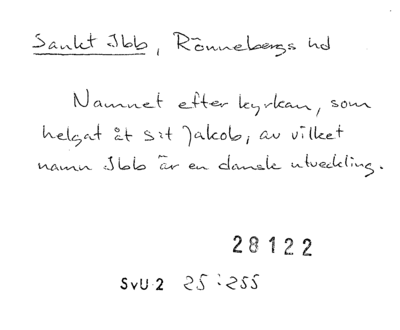 Sankt Ibb, Rönnebergs hd
Namnet efter kyrkan, som
helgat åt S:t Jakob, av vilket
namn Ibb är en dansk utveckling.
28122
SvU 2 25:255